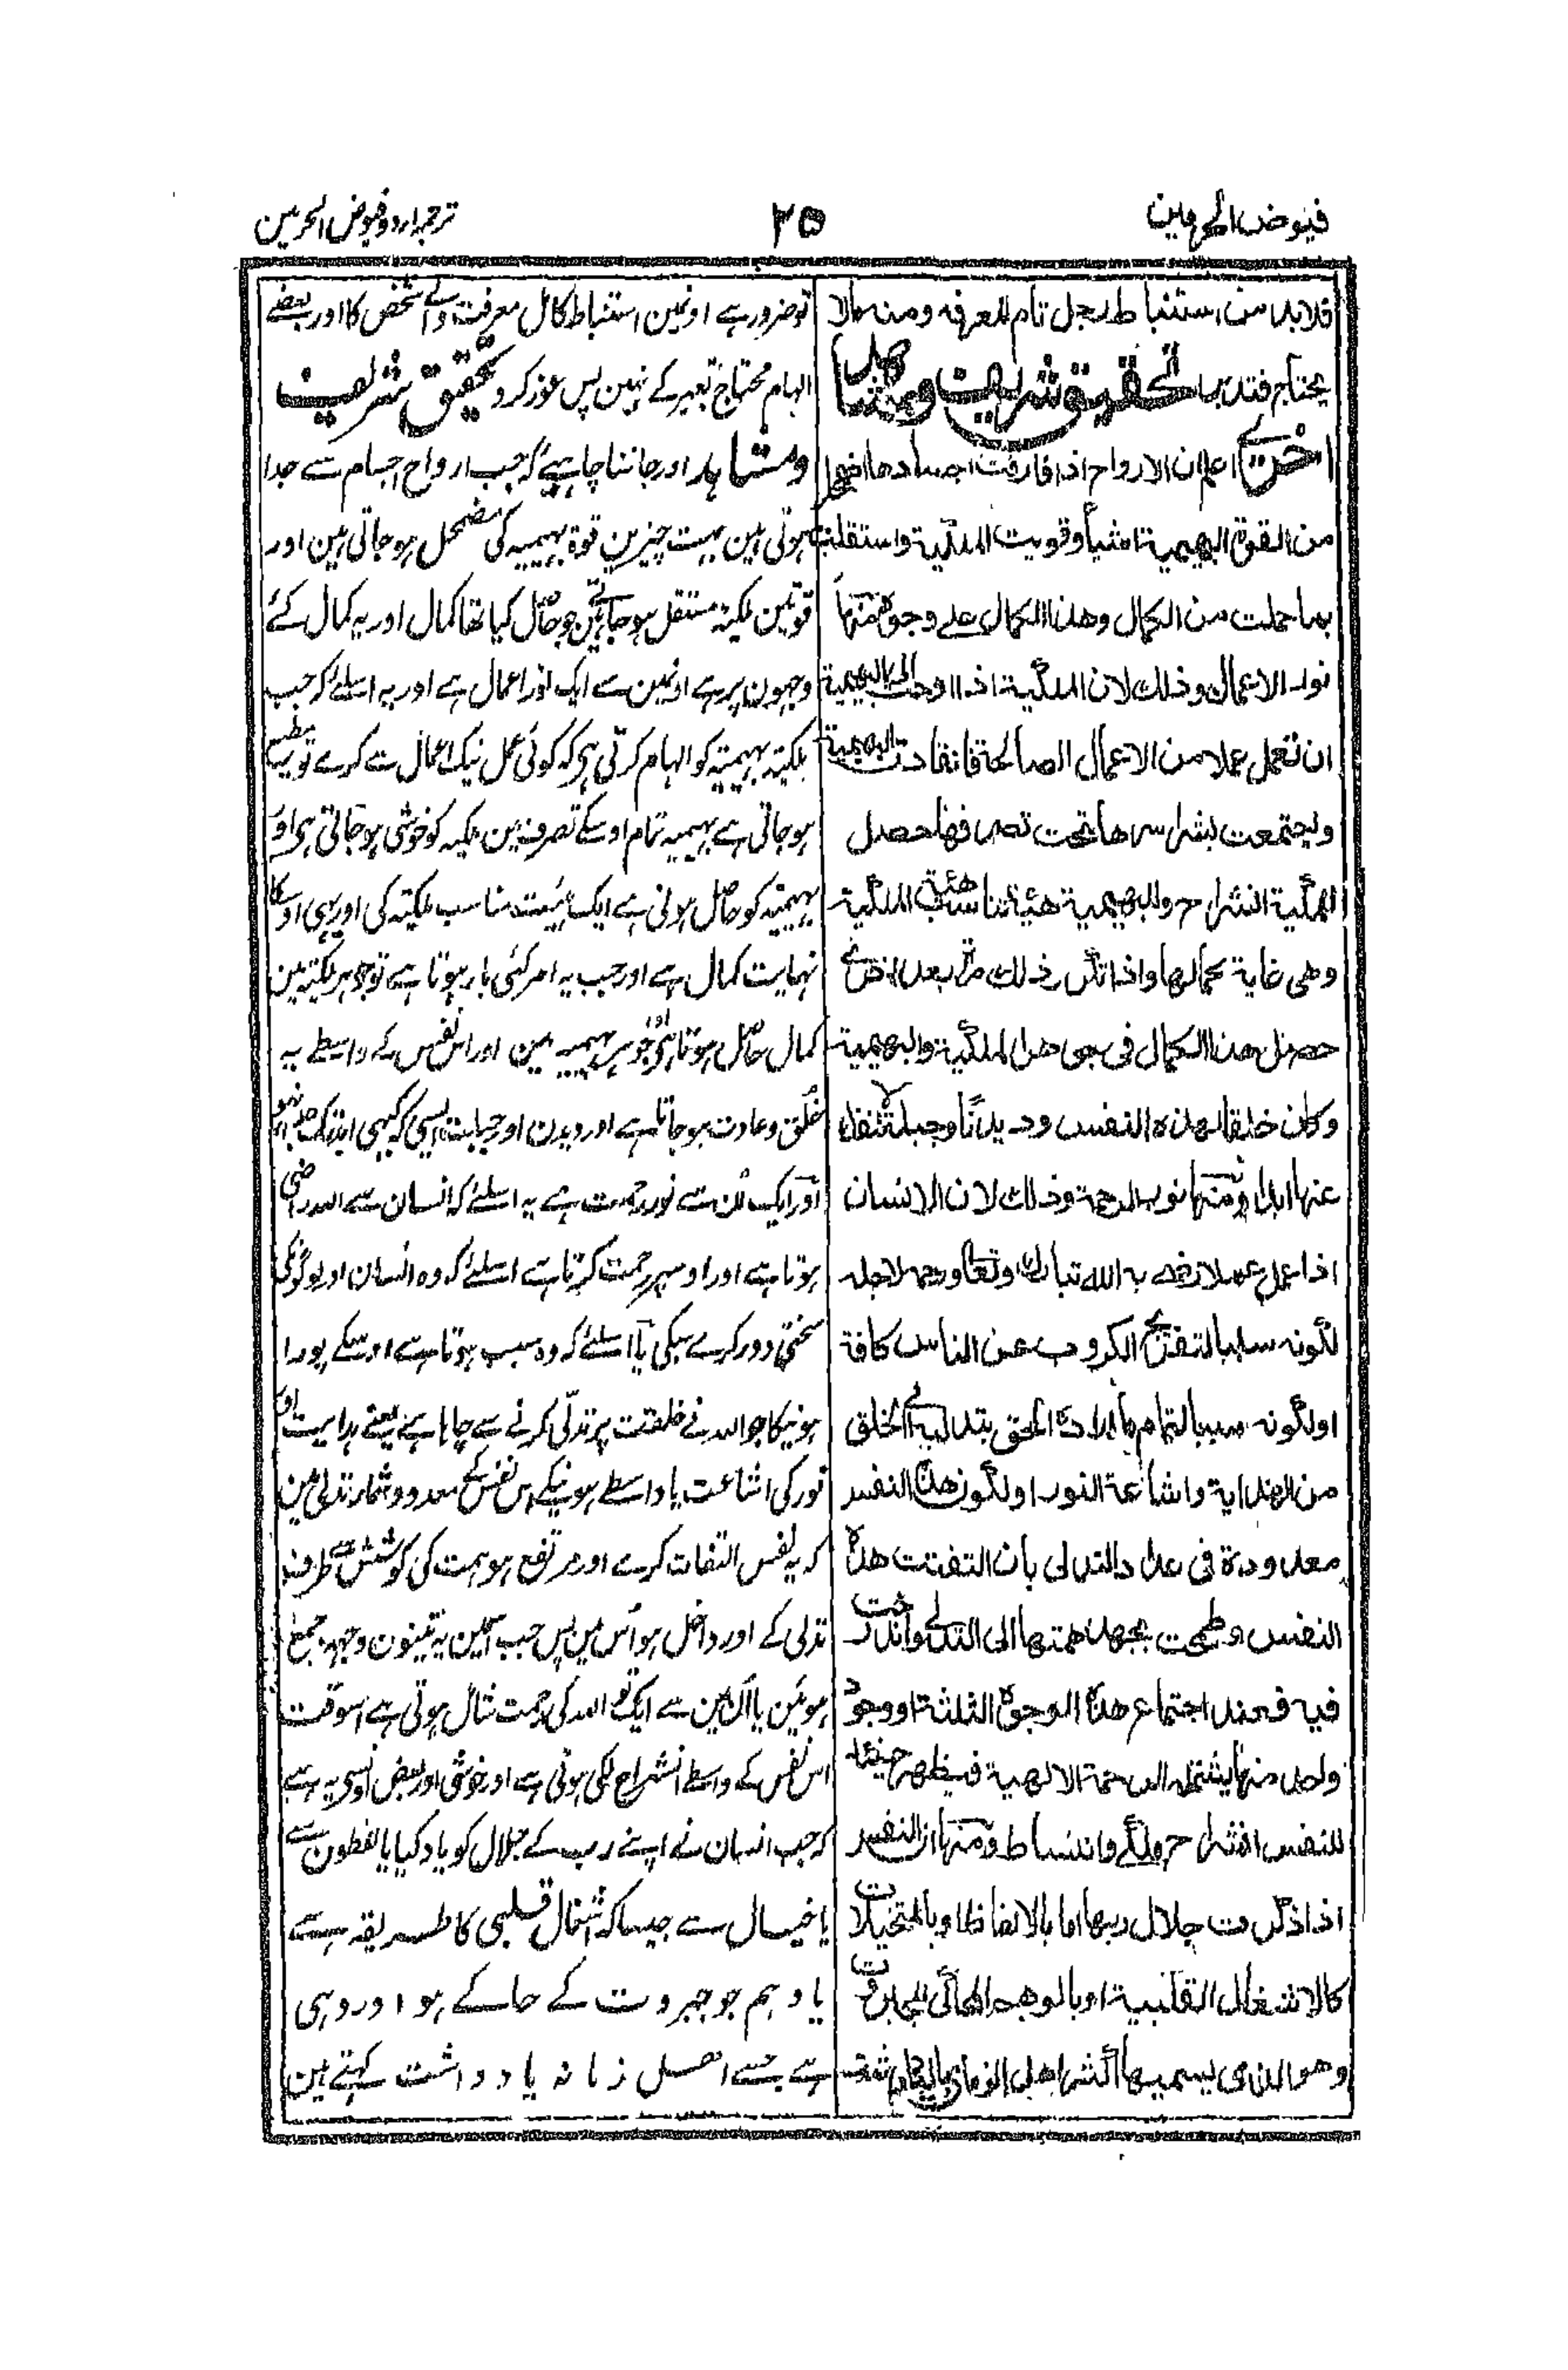 فیوض الحرمین
۲۵
ترجمہ اردو فیوض الحرمین
فلابد من استنباط رجل تام المعرفه ومنه مالا
یحتاج فتدبر تحقیق شریف ومشاهد
اخری اعلم ان الارواح اذا فارقت اجسادها اضمحل
من القوة البهیمیة اشیاء وقویت الملکیة واستقلت
بما حملت من الکمال وهذا الکمال علے وجوه منها
نور الاعمال وذلك لان الملکیة اذا اوحت الی البهیمیة
ان تعمل عملا من الاعمال الصالحة فانقادت البهیمیة
ویجتمعت بشراسرها تحت تصرفها حصل
للملکیة انشراح وللبهیمیة هیئة تناسب الملکیة
وهی غایة کمالها واذا تکرر ذلك مرة بعد اخری
حصل هذا الکمال فی جوهر الملکیة والبهیمیة
وکان خلقا لهذه النفس ودیدنا وجبلة لا تنفك
عنها ابدا ومنها نور الرحمة وذلك لان الانسان
اذا عمل عملا رضے به الله تبارك وتعالی ورحمه لاجله
لکونه سببا لتفریج الکروب عن الناس کافة
اولکونه سببا لتمام ما اراده الحق بتدلیه الی الخلق
من الهدایة واشاعة النور اولکون هذه النفس
معدودة فی عداد التدلی بان التفتت هذه
النفس وطمحت بجهد همتها الی التدلی واندرجت
فیه فعند اجتماع هذه الوجوه الثلثة او وجود
واحد منها یشتمله الرحمة الالهیة فیظهر حینئذ
للنفس انشراح ملکی وانبساط ومنها ان النفس
اذا ذکرت جلال ربها اما بالالفاظ او بالمتخیلات
کالاشغال القلبیة او بالوهم الحاکی للجبروت
وهو الذی یسمیها اکثر اهل الزمان بالیادداشت
توضرور ہے اونمین استنباط کامل معرفت والے شخص کا اور بعضے
الہام محتاج تعبیر کے نہین پس غور کرو تحقیق شریف
ومشاہد اور جاننا چاہیے کہ جب ارواح اجسام سے جدا
ہوتی ہین بہت چیزین قوۃ بہیمیہ کی مضمحل ہوجاتی ہین اور
قوتین ملکیہ مستقل ہوجاتے ہین جو حاصل کیا تھا کمال اور یہ کمال کئے
وجہون پر ہے اونمین سے ایک نور اعمال ہے اور یہ اسلئے کہ جب
ملکیہ بہیمیہ کو الہام کرتی ہی کہ کوئی عمل نیک اعمال سے کرے تو یہ مطیع
ہوجاتی ہے بہیمیہ تمام اوسکے تصرف مین ملکیہ کو خوشی ہوجاتی ہی اور
بہیمیہ کو حاصل ہوتی ہے ایک ہیئت مناسب ملکیہ کی اور یہی اوسکا
نہایت کمال ہے اور جب یہ امر کئی بار ہوتا ہے تو جوہر ملکیہ مین
کمال حاصل ہوتا ہی اور جوہر بہیمیہ مین اور اس نفس کے واسطے یہ
خُلق وعادت ہوجاتا ہے اور دیدن اور جبلت ایسی کہ کبہی اوسے جدا نہو
اور ایک اُن سے نور رحمت ہے یہ اسلئے کہ انسان سے اللہ راضی
ہوتا ہے اور اوسپر رحمت کرتا ہے اسلئے کہ وہ انسان اور لوگونکی
سختی دور کرے سبکی یا اسلئے کہ وہ سبب ہوتا ہے اوسکے پورا
ہونیکا جو اللہ نے خلقت پر تدلّی کرنے سے چاہا ہے یعنے ہدایت اور
نور کی اشاعت یا واسطے ہونیکے اس نفس کے معدود شمار تدلی مین
کہ یہ نفس التفات کرے اور مرتفع ہو ہمت کی کوشش سے طرف
تدلی کے اور داخل ہو اُس مین پس جب اسمین یہ تینون وجہہ جمع
ہوئین یا اُن مین سے ایک تو اللہ کی رحمت شامل ہوتی ہے اسوقت
اس نفس کے واسطے انشراح ملکی ہوتی ہے اور خوشی اور بعض اونسے یہ ہے
کہ جب انسان نے اپنے رب کے جلال کو یاد کیا یا لفظون سے
یا خیال سے جیسا کہ اشغال قلبی کا طریقہ ہے
یا وہم جو جبروت کے حاکے ہو اور وہی
ہے جسے اہل زمانہ یادداشت کہتے ہین